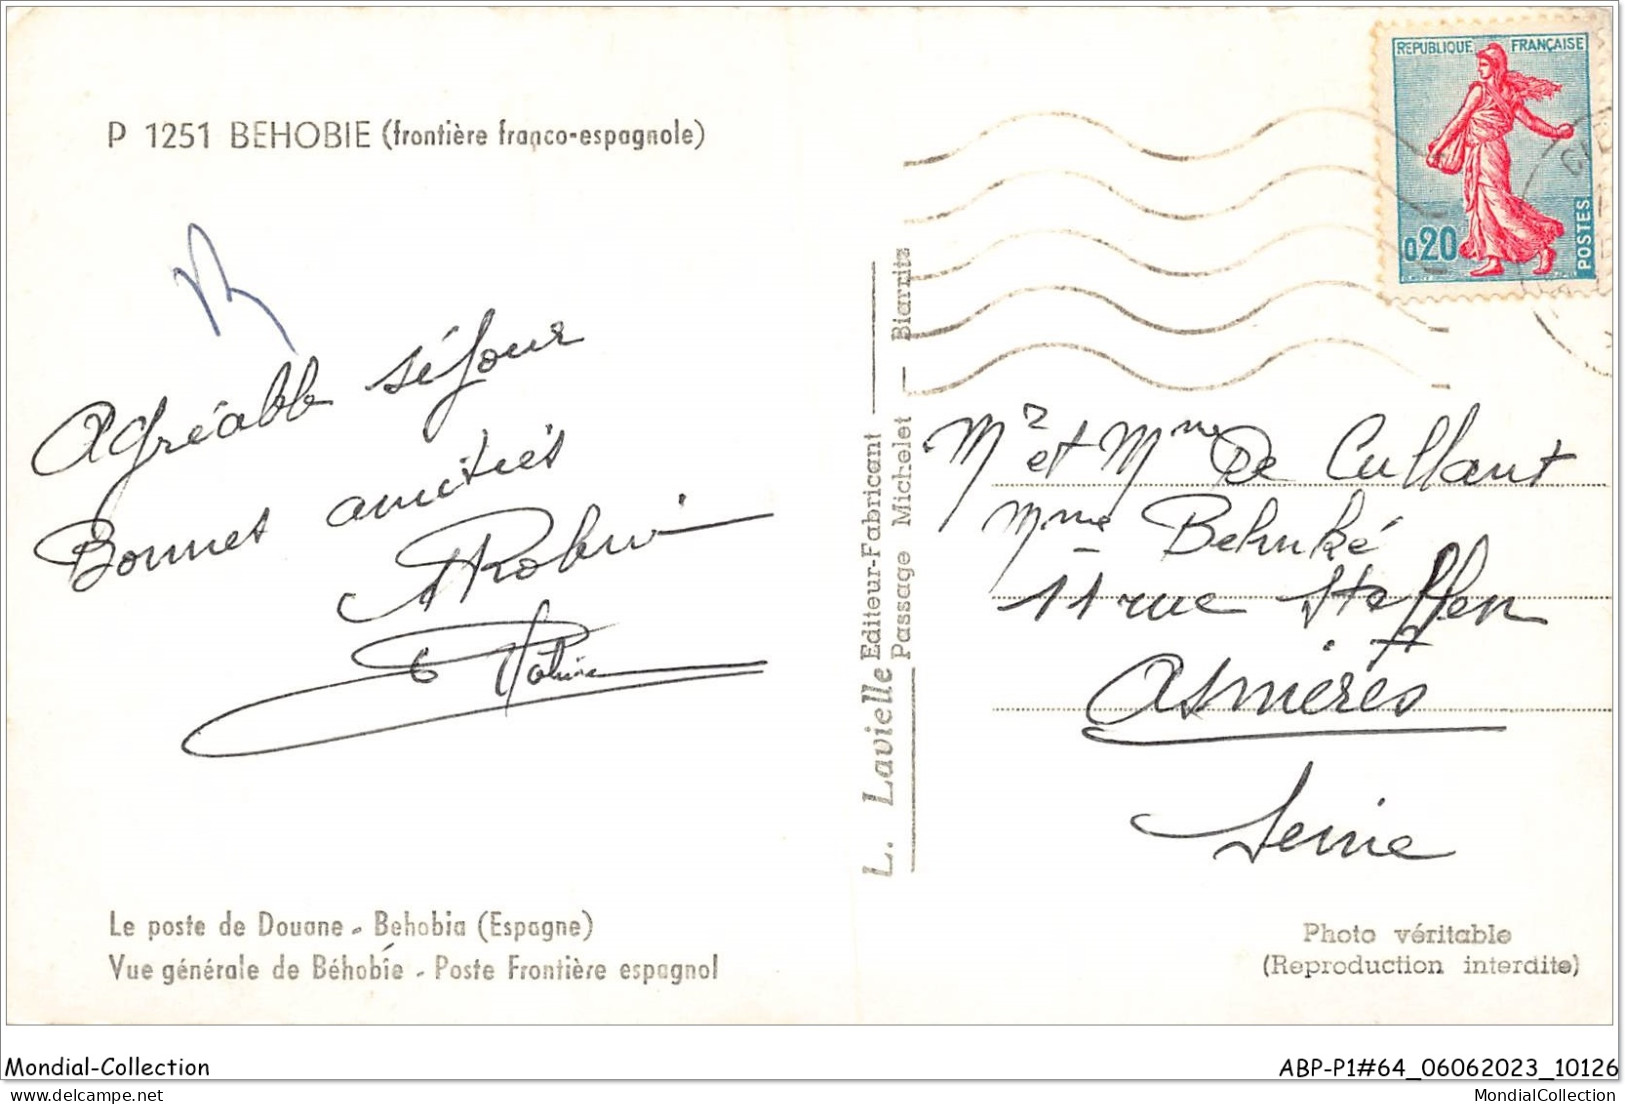 P 1251 BEHOBIE (frontière franco-espagnole)
Agréable séjour
Bonnes amitiés
Robin
Le poste de Douane - Behobia (Espagne)
Vue générale de Béhobie - Poste Frontière espagnol
L. Lavielle Editeur-Fabricant
Passage Michelet — Biarritz
REPUBLIQUE FRANÇAISE
0,20
POSTES
Mr et Mme De Cullant
Mme Behnké
11 rue Steffen
Asnières
Seine
Photo véritable
(Reproduction interdite)
Mondial-Collection
ABP-P1#64_06062023_10126
https://mondial-collection.delcampe.net
MondialCollection